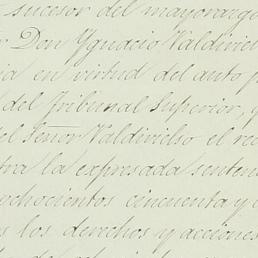 sucesor del mayorazgo
Don Ygnacio Valdiviel
en virtud del auto p
del Tribunal Superior, y
el Señor Valdivielso el rec
tra la expresada senten
chocientos cincuenta y
los derechos y acciones